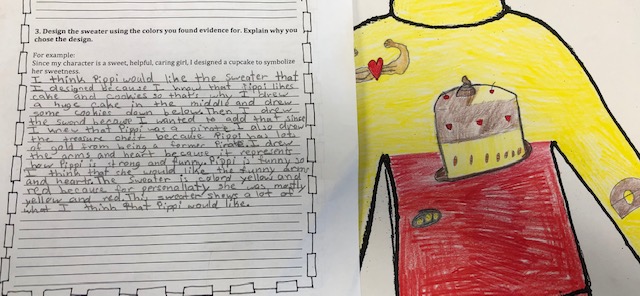 3. Design the sweater using the colors you found evidence for. Explain why you
chose the design.
For example:
Since my character is a sweet, helpful, caring girl, I designed a cupcake to symbolize
her sweetness.
I think Pippi would like the sweater that
I designed because I know that Pippi likes
cake and cookies so that's why I drew
a huge cake in the middle and drew
some cookies down below. Then I drew
the sword because I wanted to add that since
I knew that Pippi was a pirate. I also drew
the treasure chest because Pippi has lot
of gold from being a former Pirate. I drew
the arms and heart because it represent
how Pippi is strong and funny. Pippi is funny so
I think that she would like the funny arms
and heart. The sweater is colored yellow and
red because for personallaty she was mostly
yellow and red. This sweater shows a lot of
what I think that Pippi would like.